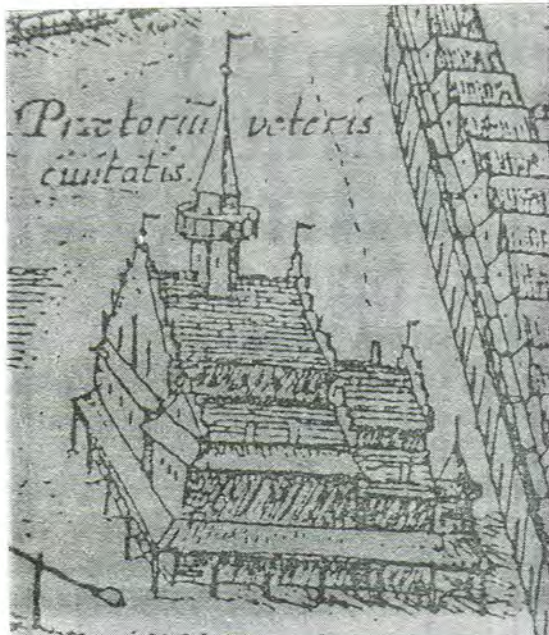 Prætoriũ veteris
ciuitatis.